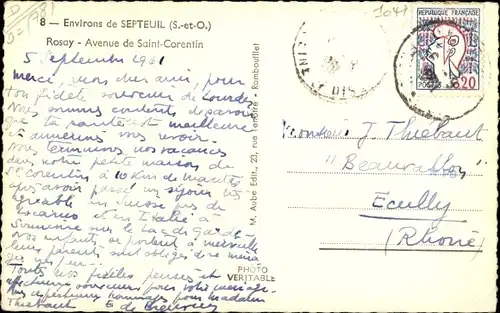 8 — Environs de SEPTEUIL (S.-et-O.)
Rosay - Avenue de Saint-Corentin
5 Septembre 1961
Merci, mon cher ami, pour
ton fidèle souvenir de Lourdes.
Nous sommes contents de savoir
que ta santé est meilleure
et aimerions vous revoir.
Nous terminons nos vacances
dans notre petite maison de
St Corentin à 10 Km de Mantes
après avoir passé un séjour
agréable en Suisse près de
Locarno et en Italie à
Sirmione sur le Lac de Garde.
Nos enfants se portent à merveille
leurs parents sont obligés de
Toutes nos fidèles pensées et
affectueux souvenirs pour votre ménage.
hommages pour Madame
Thiebaut
E de
M. Aubry Edit., 23, rue Lenôtre - Rambouillet
PHOTO
VERITABLE
1041
REPUBLIQUE FRANÇAISE
POSTES
0,20
Monsieur J Thiebaut
"Beauvallon"
Ecully
(Rhône)